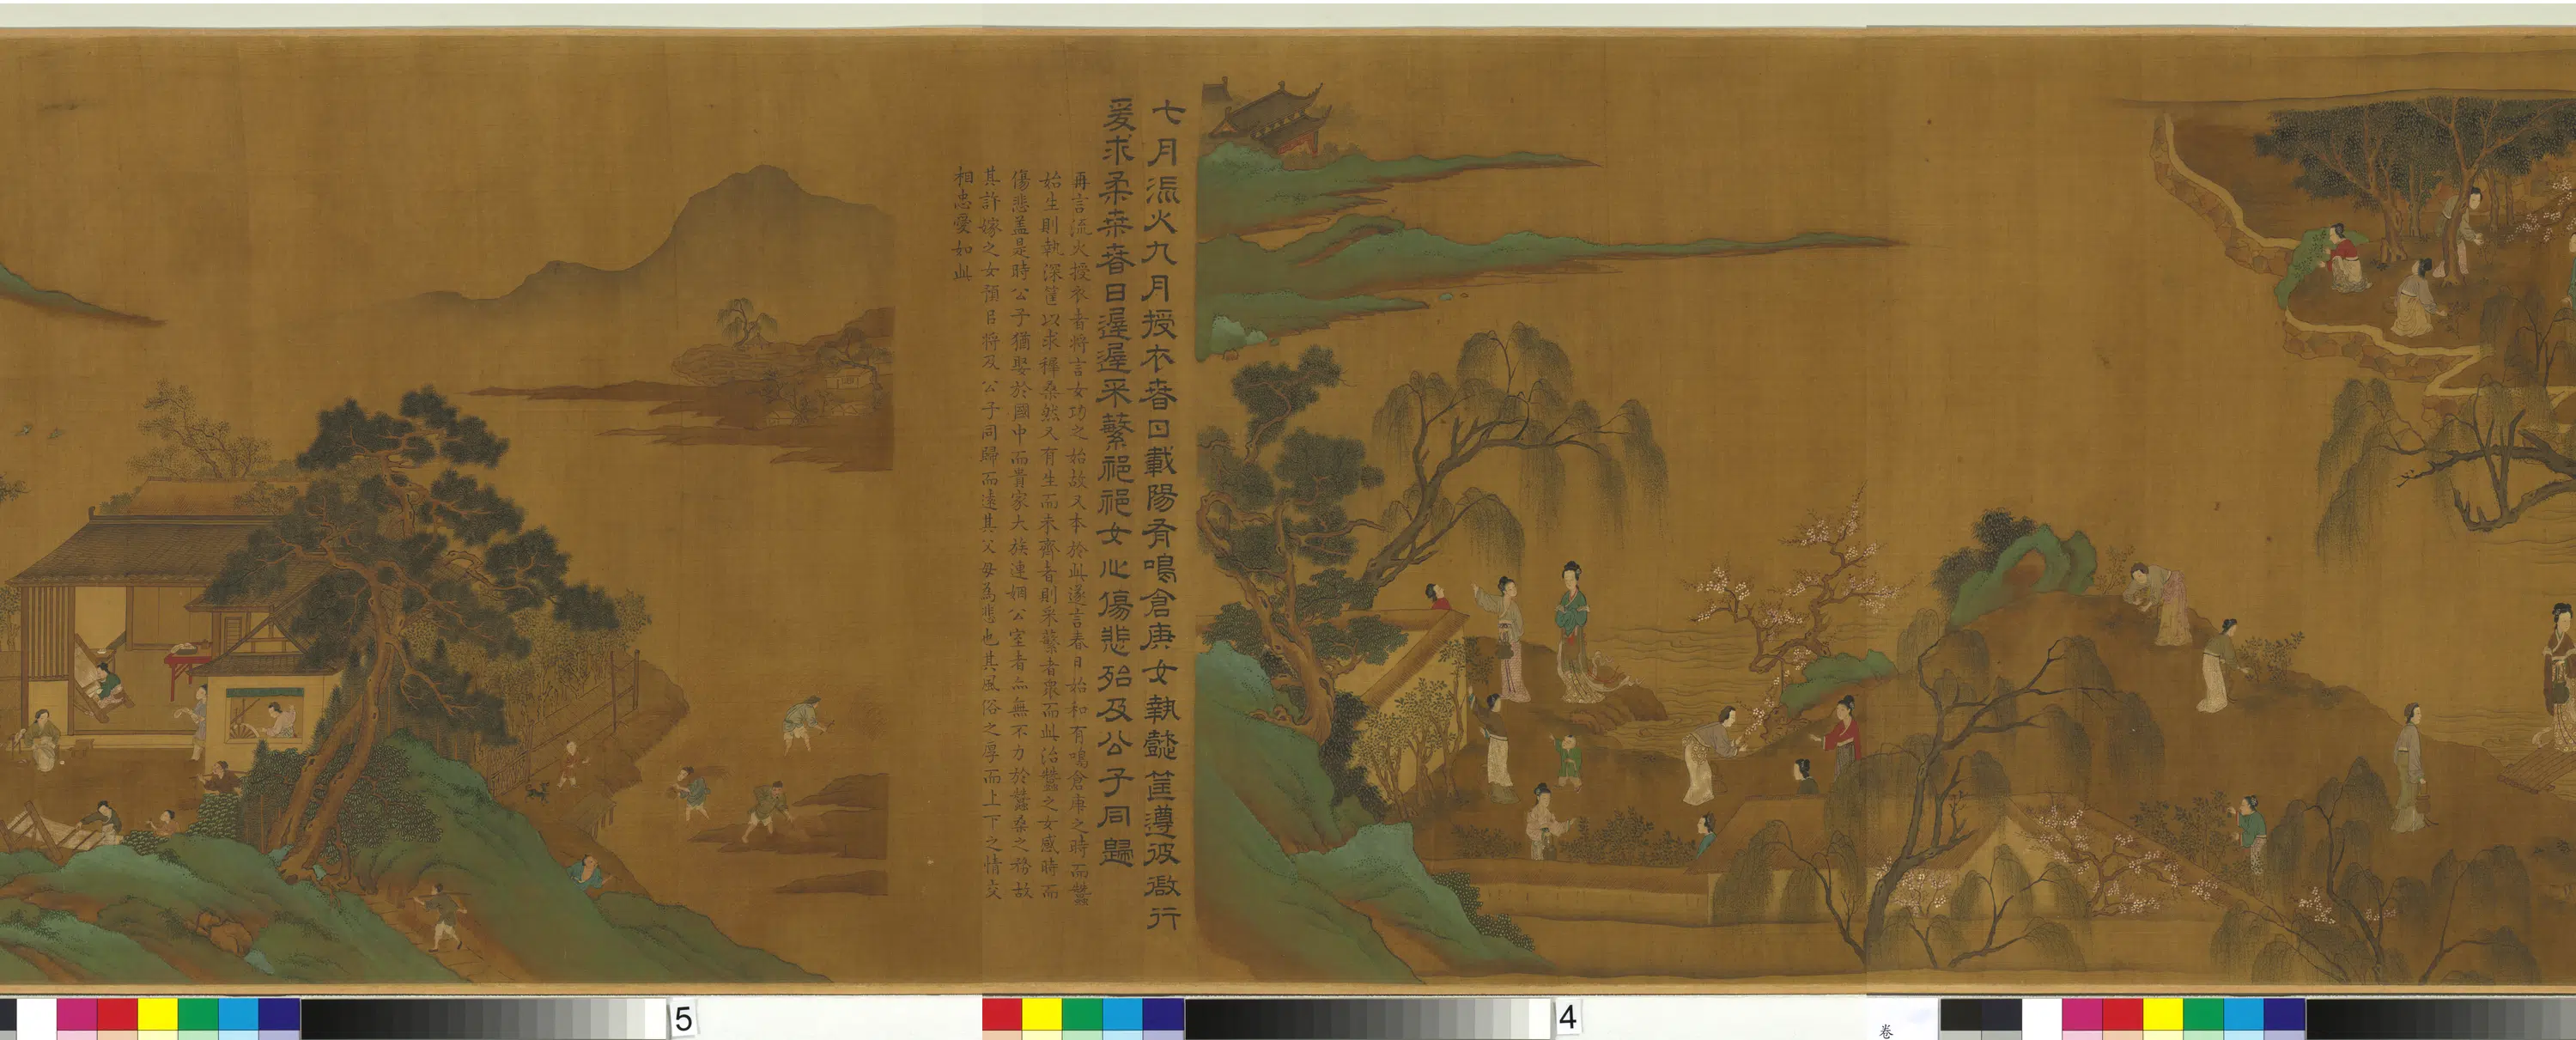 七月流火九月授衣春日載陽有鳴倉庚女執懿筐遵彼微行
爰求柔桑春日遲遲采蘩祁祁女心傷悲殆及公子同歸
再言流火授衣者將言女功之始故又本於此遂言春日始和有鳴倉庚之時而蠶
始生則執深筐以求穉桑然又有生而未齊者則采蘩者衆而此治蠶之女感時而
傷悲蓋是時公子猶娶於國中而貴家大族連姻公室者亦無不力於蠶桑之務故
其許嫁之女預以將及公子同歸而遠其父母為悲也其風俗之厚而上下之情交
相忠愛如此
5
4
卷